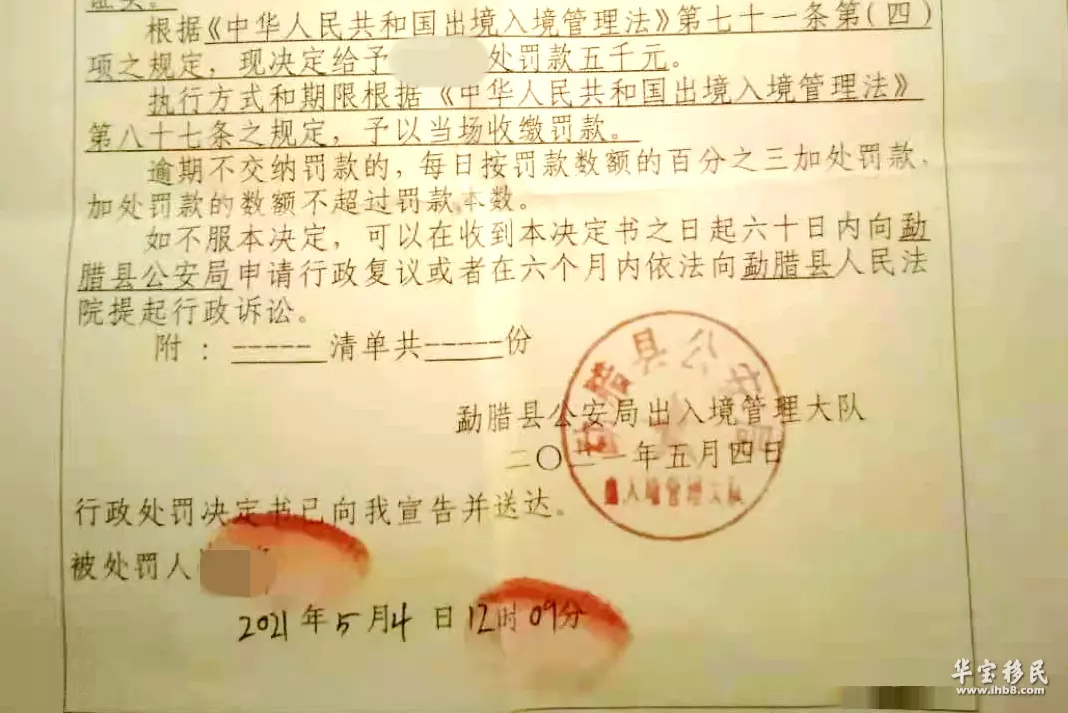 证实。
根据《中华人民共和国出境入境管理法》第七十一条第(四)
项之规定，现决定给予 处罚款五千元。
执行方式和期限根据《中华人民共和国出境入境管理法》
第八十七条之规定，予以当场收缴罚款。
逾期不交纳罚款的，每日按罚款数额的百分之三加处罚款，
加处罚款的数额不超过罚款本数。
如不服本决定，可以在收到本决定书之日起六十日内向勐
腊县公安局申请行政复议或者在六个月内依法向勐腊县人民法
院提起行政诉讼。
附：----- 清单共-----份
勐腊县公安局
出入境管理大队
勐腊县公安局出入境管理大队
二〇二一年五月四日
行政处罚决定书已向我宣告并送达。
被处罚人
2021年5月4日12时09分
华宝移民
www.ihb8.com